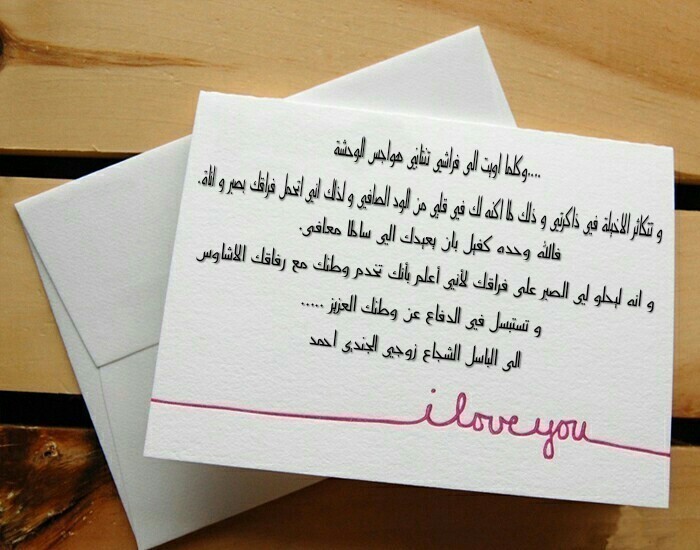 ...وكلما اويت الى فراشي تنتابني هواجس الوحشة
و تتكاثر الاخيلة في ذاكرتي و ذلك لما اكنه لك في قلبي من الود الصافي و لذلك اني اتحمل فراقك بصبر و اناة.
فالله وحده كفيل بان يعيدك الي سالما معافى.
و انه ليحلو لي الصبر على فراقك لأني أعلم بأنك تخدم وطنك مع رفاقك الاشاوس
و تستبسل في الدفاع عن وطنك العزيز .....
الى الباسل الشجاع زوجي الجندي احمد
i love you